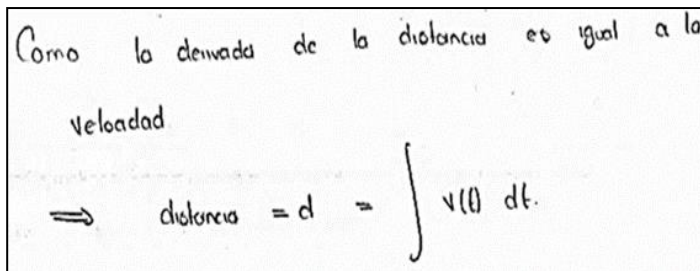 Como la derivada de la distancia es igual a la
velocidad
⟹ distancia = d = ∫ v(t) dt.